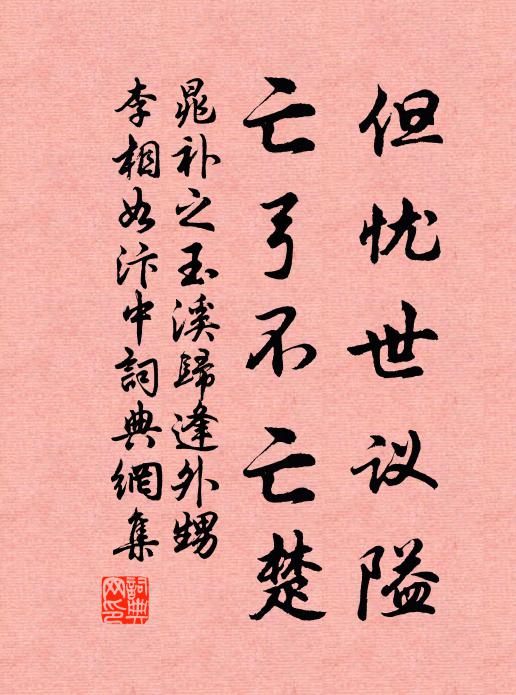 但忧世议隘
亡弓不亡楚
晁补之玉溪歸逢外甥
李相如汴中詞典網集
詞典網印